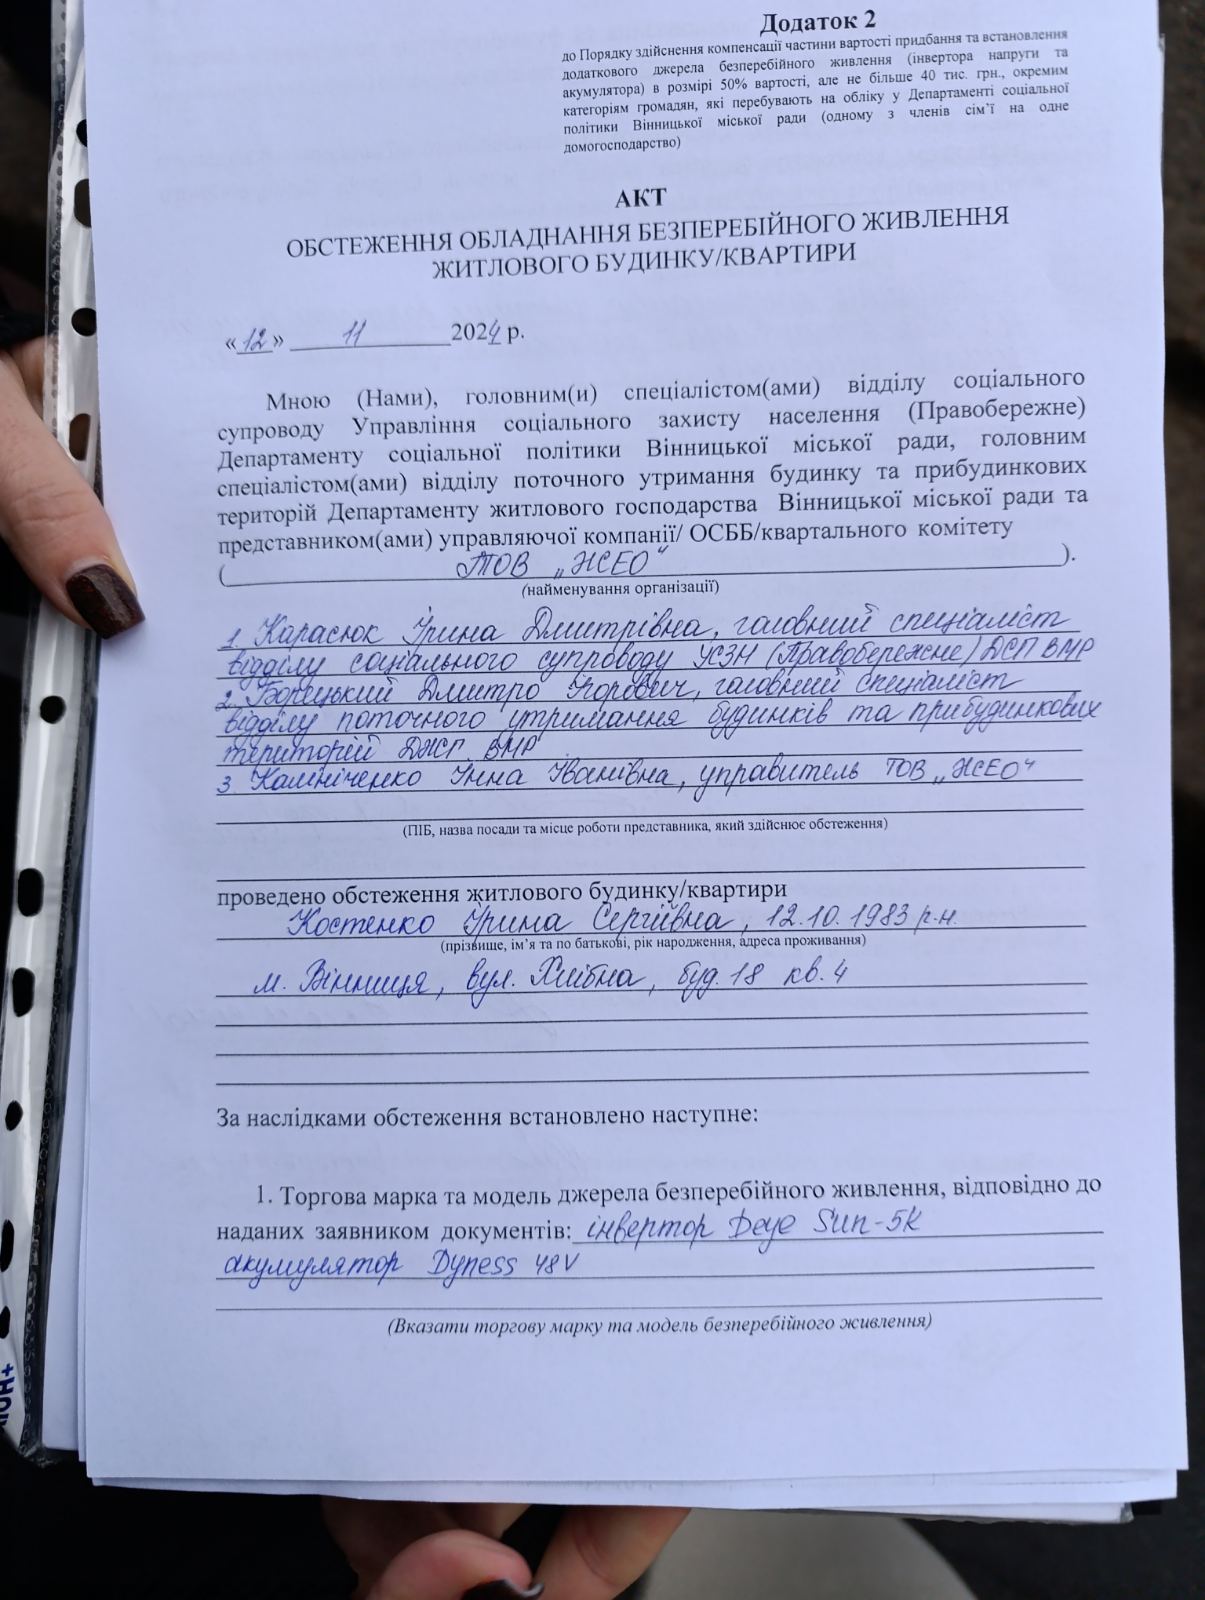 Додаток 2
до Порядку здійснення компенсації частини вартості придбання та встановлення
додаткового джерела безперебійного живлення (інвертора напруги та
акумулятора) в розмірі 50% вартості, але не більше 40 тис. грн., окремим
категоріям громадян, які перебувають на обліку у Департаменті соціальної
політики Вінницької міської ради (одному з членів сім’ї на одне
домогосподарство)
АКТ
ОБСТЕЖЕННЯ ОБЛАДНАННЯ БЕЗПЕРЕБІЙНОГО ЖИВЛЕННЯ
ЖИТЛОВОГО БУДИНКУ/КВАРТИРИ
«12» 11 2024 р.
Мною (Нами), головним(и) спеціалістом(ами) відділу соціального
супроводу Управління соціального захисту населення (Правобережне)
Департаменту соціальної політики Вінницької міської ради, головним
спеціалістом(ами) відділу поточного утримання будинку та прибудинкових
територій Департаменту житлового господарства Вінницької міської ради та
представником(ами) управляючої компанії/ ОСББ/квартального комітету
( ТОВ „ЖЕО“ ).
(найменування організації)
1. Карасюк Ірина Дмитрівна, головний спеціаліст
відділу соціального супроводу УСЗН (Правобережне) ДСП ВМР
2. Борецький Дмитро Ігорович, головний спеціаліст
відділу поточного утримання будинків та прибудинкових
територій ДЖГ ВМР
3. Калініченко Інна Іванівна, управитель ТОВ „ЖЕО“
(ПІБ, назва посади та місце роботи представника, який здійснює обстеження)
проведено обстеження житлового будинку/квартири
Костенко Ірина Сергіївна, 12.10.1983 р.н.
(прізвище, ім’я та по батькові, рік народження, адреса проживання)
м. Вінниця, вул. Хлібна, буд. 18 кв. 4
За наслідками обстеження встановлено наступне:
1. Торгова марка та модель джерела безперебійного живлення, відповідно до
наданих заявником документів: інвертор Deye Sun-5K
акумулятор Dyness 48V
(Вказати торгову марку та модель безперебійного живлення)